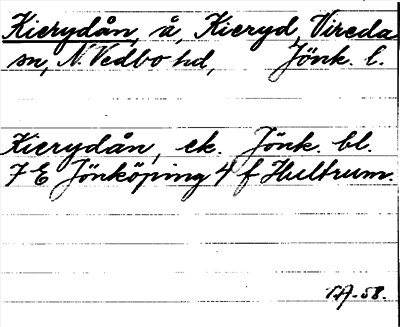 Kierydån, å, Kieryd, Vireda
sn, N. Vedbo hd, Jönk. l.
Kierydån, ek. Jönk. bl.
7 E Jönköping 4 f Hultrum.
-58.